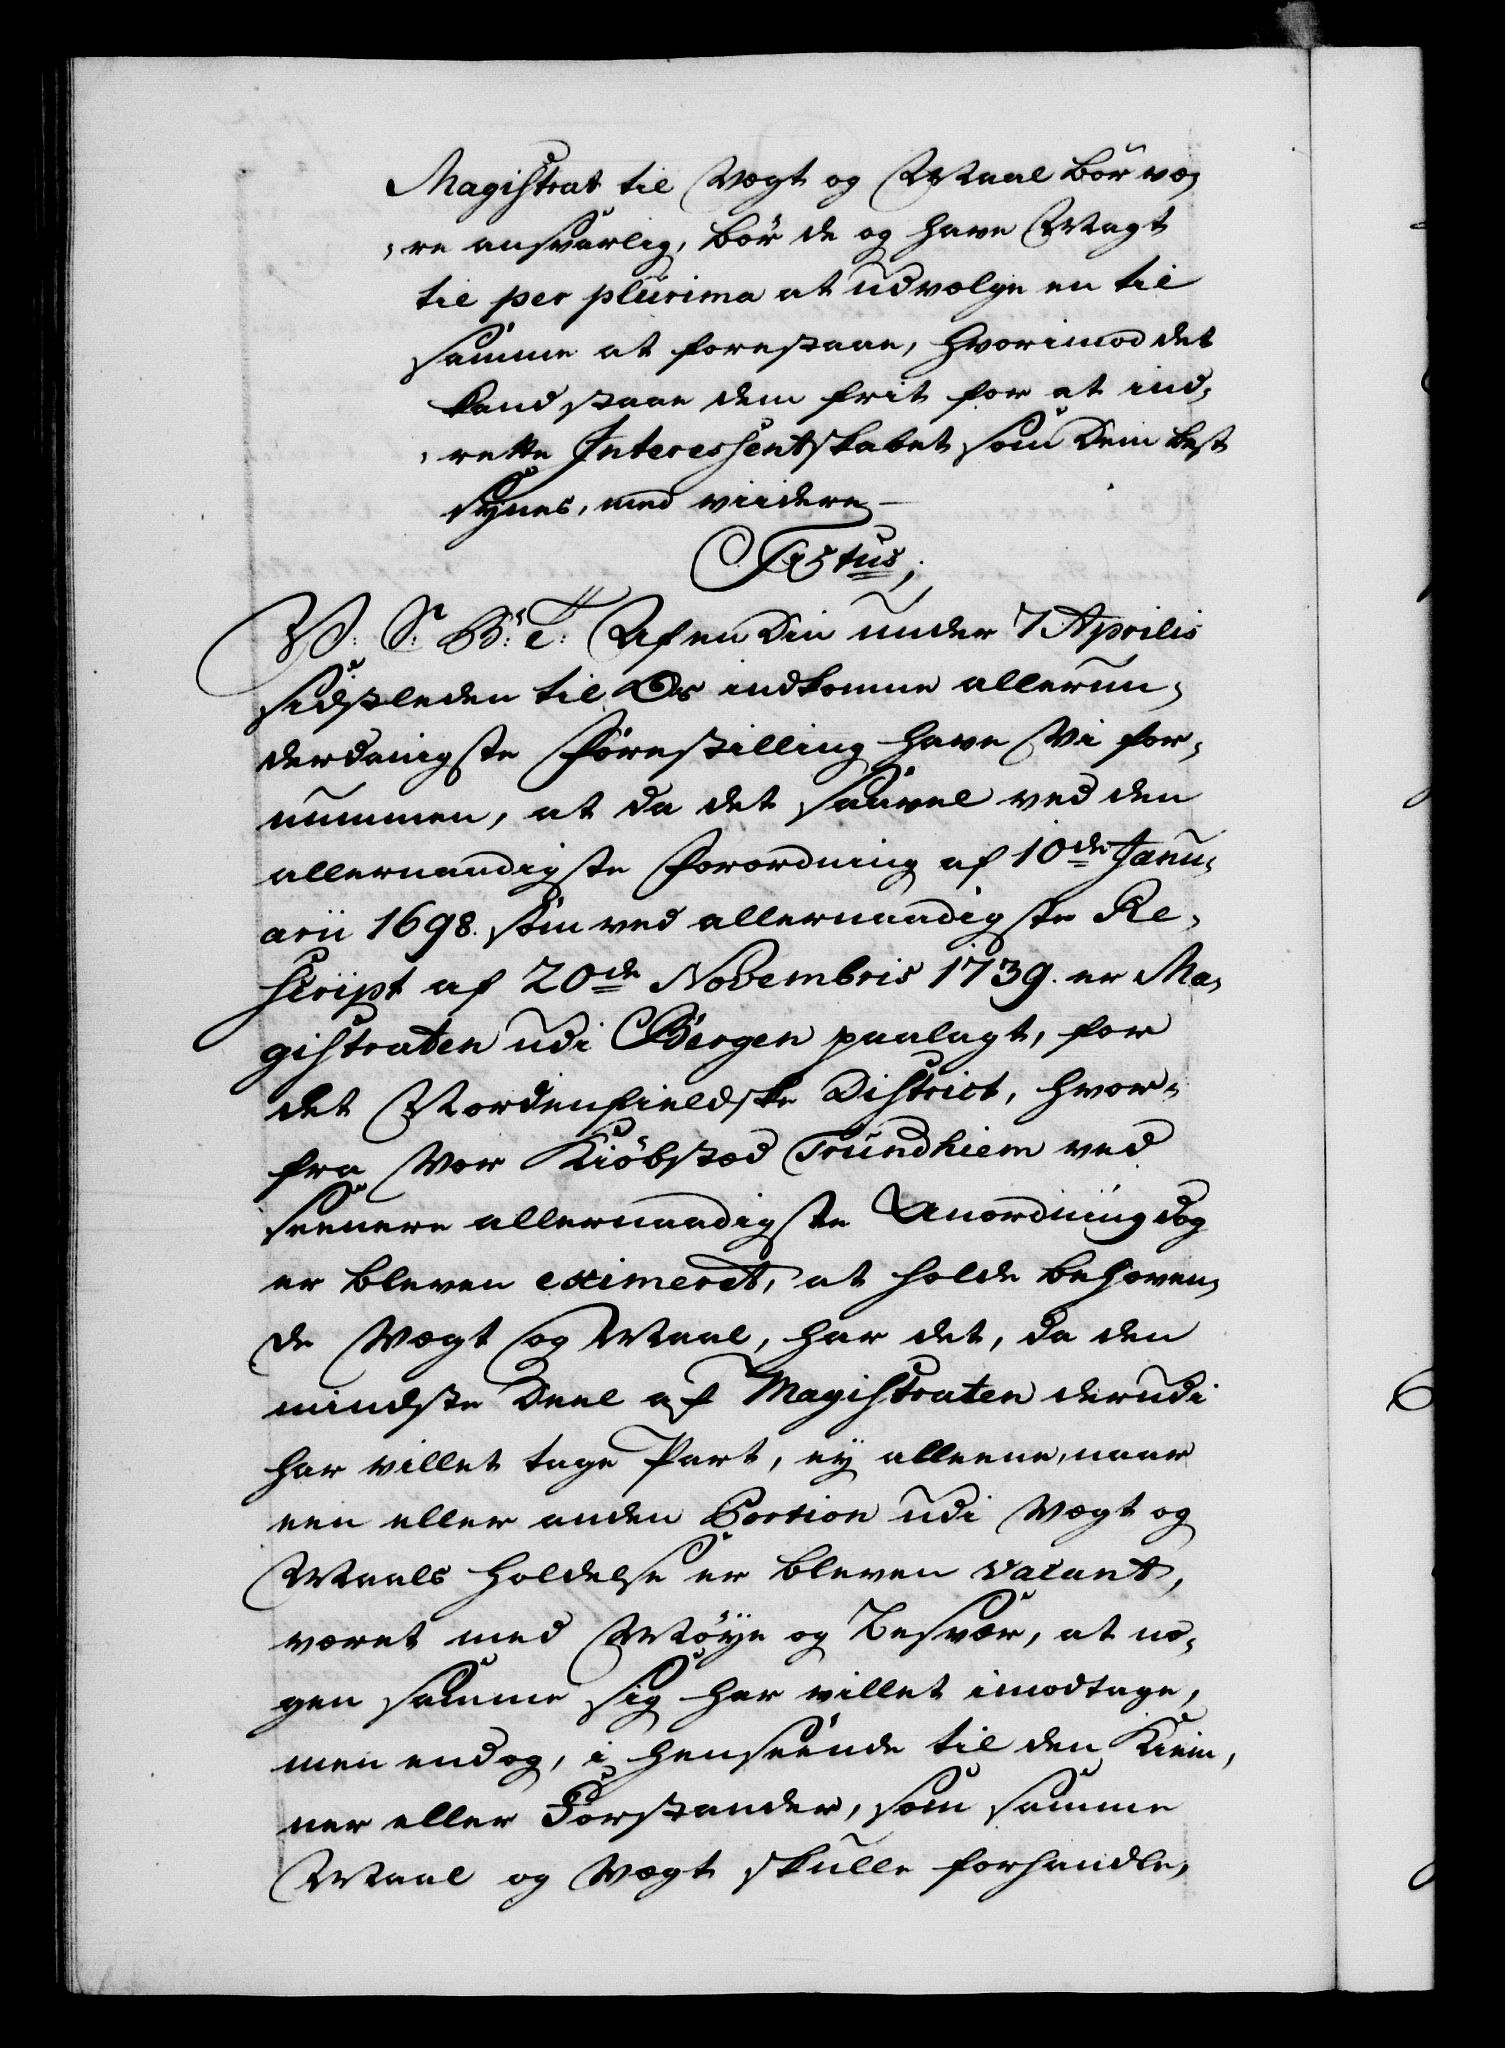 Magistrat til Vægt og Maal bör væ-
-re ansvarlig, bör de og have Magt
til per plurima at udvælge en til
samme at forestaae, hvorimod det
kand staae dem frit for at ind-
-rette Interessentskabet som dem best
synes, med viidere
Textus;
V. S. B: T: Af en Din under 7 Aprilis
sidstleden til Os indkomne allerun-
derdanigste Forestilling have Vi for-
nummen, at da det saavel ved den
allernaadigste Forordning af 10de Janu-
arii 1698. som ved allernaadigste Re-
script af 20de Novembris 1739. er Ma-
gistraten udi Bergen paalagt, for
det Nordenfieldske District, hvor-
fra Vor Kiöbstæd Trundhiem ved
seenere allernaadigste Anordning dog
er bleven eximeret, at holde behøven-
de Vægt og Maal, har det, da den
mindste Deel af Magistraten derudi
har villet tage Part, ey alleene, naar
een eller anden Portion udi Vægt og
Maals Holdelse er bleven vacant,
været med Möye og Besvær, at no-
gen samme sig har villet imodtage,
men endog, i henseende til den Kiem-
ner eller Forstander, som samme
Maal og Vægt skulle forhandle,